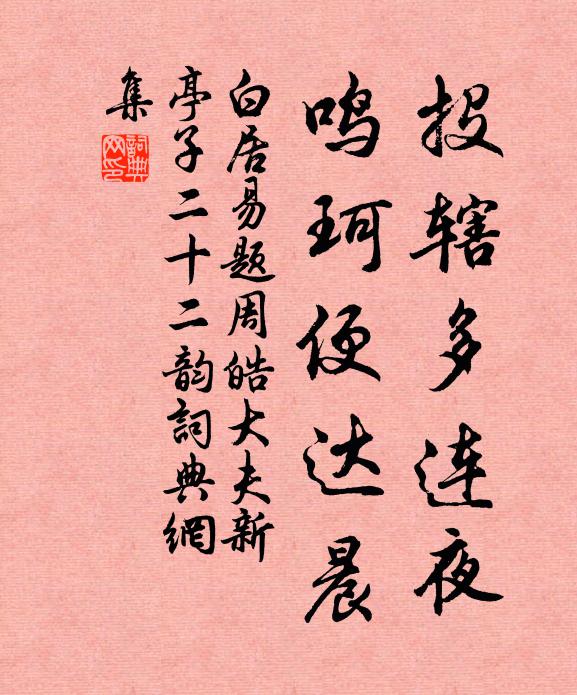 投辖多连夜
鸣珂便达晨
白居易题周皓大夫新
亭子二十二韵詞典網
集
詞典
网印